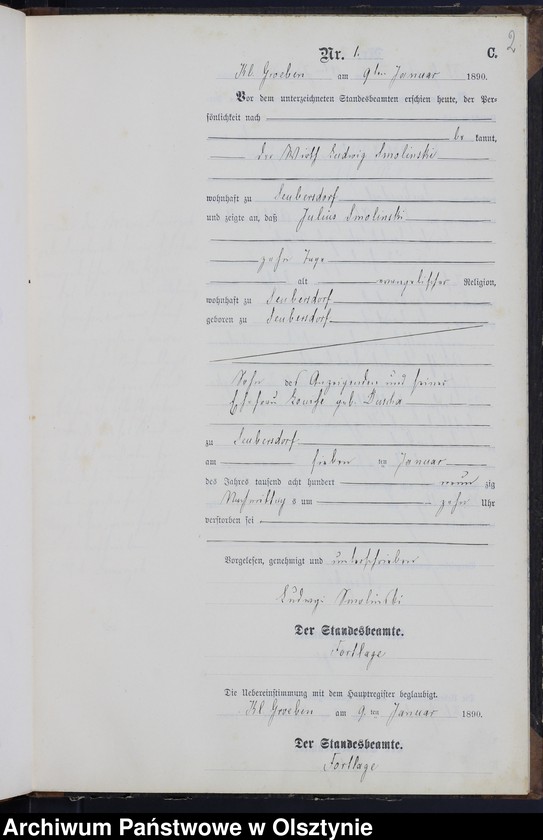 2
Nr. 1. C.
Kl. Groeben am 9ten Januar 1890.
Vor dem unterzeichneten Standesbeamten erschien heute, der Per=
sönlichkeit nach
be kannt,
der Wirth Ludwig Smolinski
wohnhaft zu Seubersdorf
und zeigte an, daß Julius Smolinski
zehn Tage
alt evangelischer Religion,
wohnhaft zu Seubersdorf
geboren zu Seubersdorf
Sohn des Anzeigenden und seiner
Ehefrau geb.
zu Seubersdorf
am sieben ten Januar
des Jahres tausend acht hundert neun zig
Nachmittag s um zehn Uhr
verstorben sei
Vorgelesen, genehmigt und unterschrieben
Ludwig Smolinski
Der Standesbeamte.
Fortlage
Die Uebereinstimmung mit dem Hauptregister beglaubigt.
Kl. Groeben am 9 ten Januar 1890.
Der Standesbeamte.
Fortlage
Archiwum Państwowe w Olsztynie